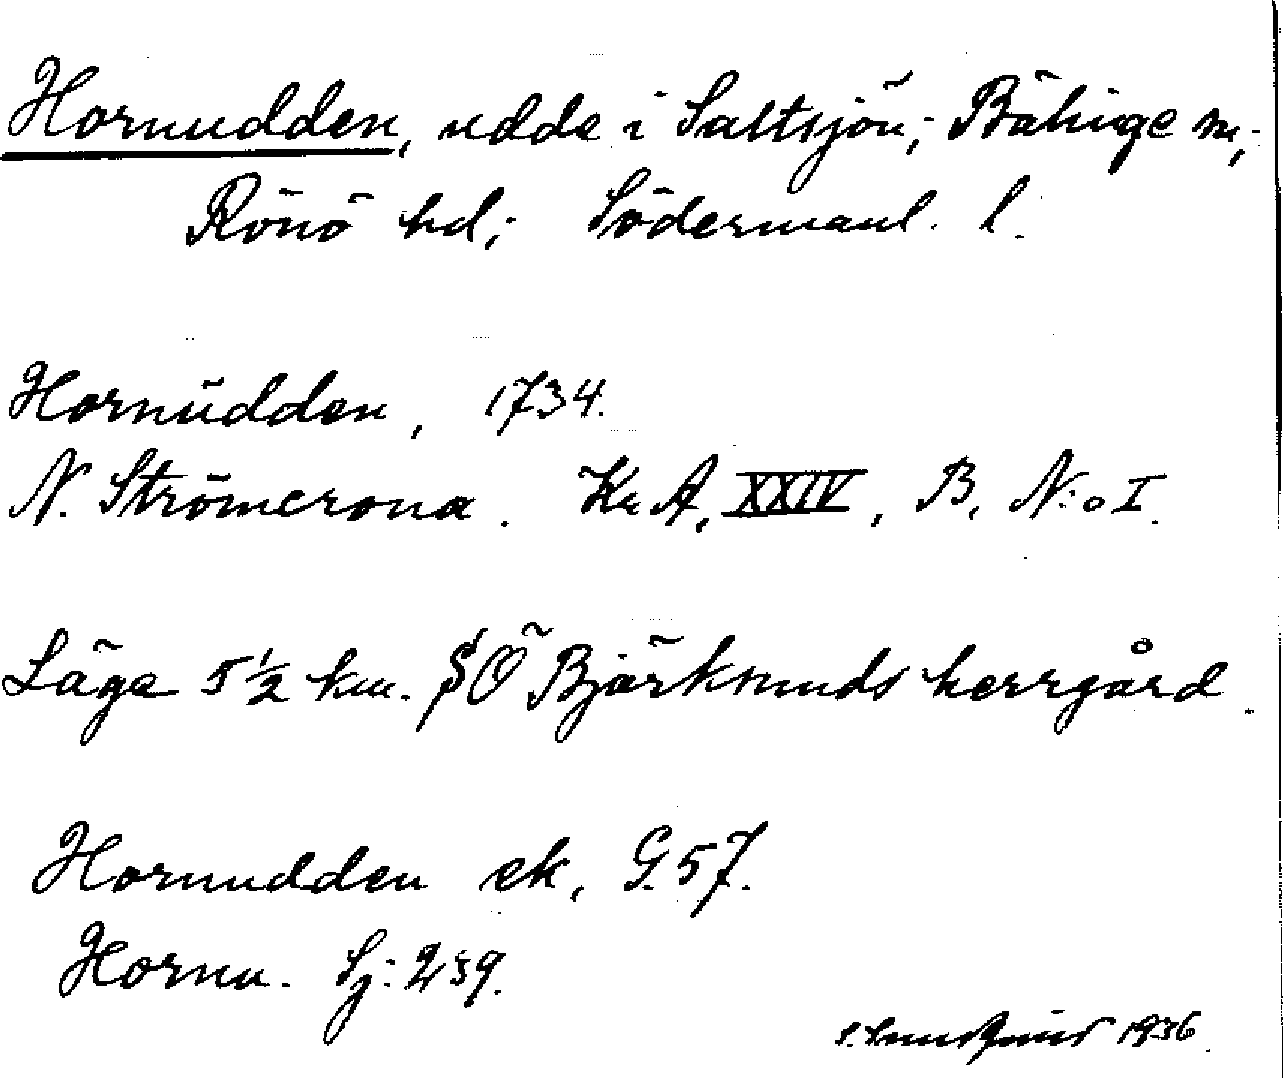 Hornudden, udde i Saltsjön; Bälinge sn;
Rönö hd; Södermanl. l.
Hornüdden, 1734.
N. Strömcrona. Kr. A, XXIV, B, N:o I.
Läge 5 ½ km. SÖ Björksunds herrgård.
Hornudden ek, G. 57.
Hornu. Sj: 239.
S. Lundqvist 1936.